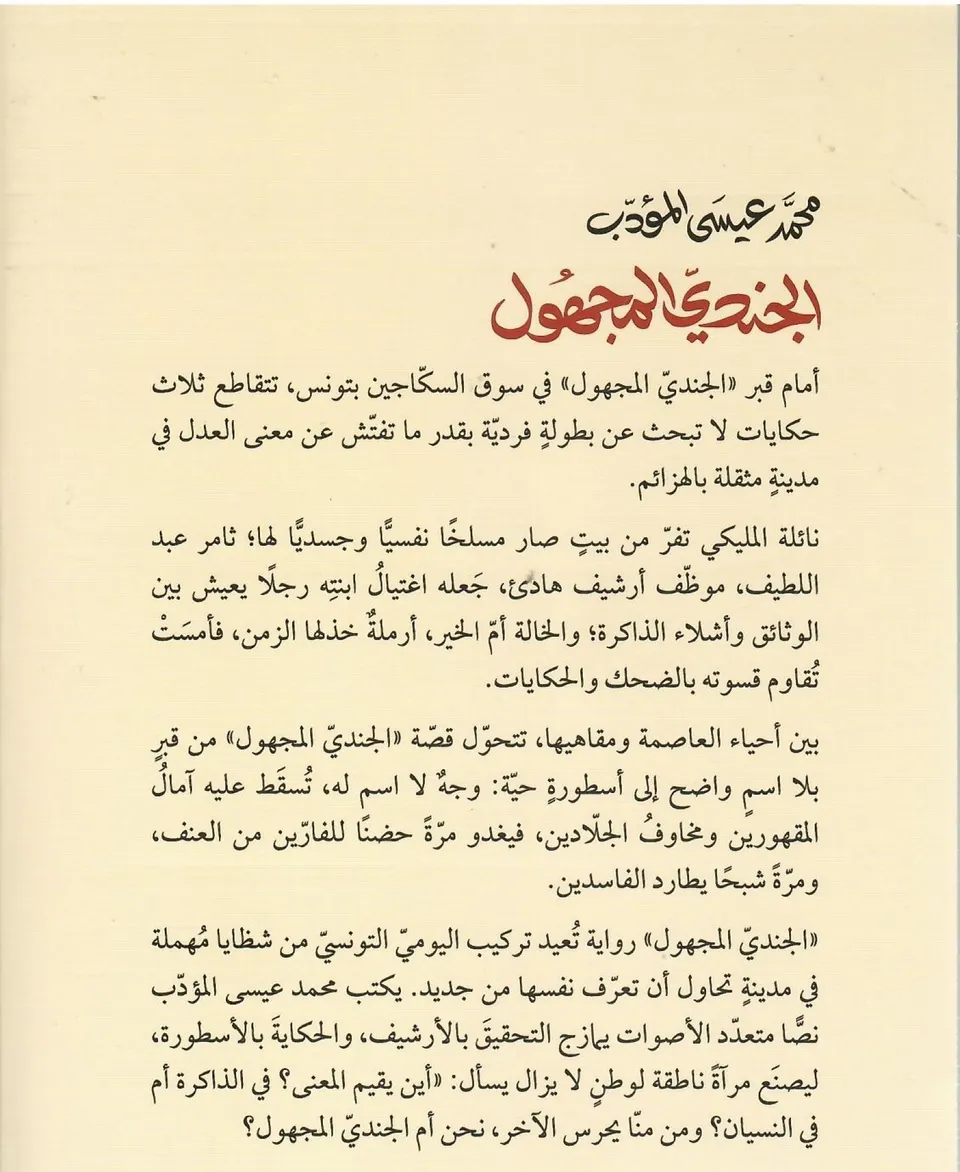 محمَّد عيسَى المؤدّب
الجنديّ المجهُول
أمام قبر «الجنديّ المجهول» في سوق السكّاجين بتونس، تتقاطع ثلاث
حكايات لا تبحث عن بطولةٍ فرديّة بقدر ما تفتّش عن معنى العدل في
مدينةٍ مثقلة بالهزائم.
نائلة المليكي تفرّ من بيتٍ صار مسلخًا نفسيًّا وجسديًّا لها؛ ثامر عبد
اللطيف، موظّف أرشيف هادئ، جَعله اغتيالُ ابنتِه رجلًا يعيش بين
الوثائق وأشلاء الذاكرة؛ والخالة أمّ الخير، أرملةٌ خذلها الزمن، فأمسَتْ
تُقاوم قسوته بالضحك والحكايات.
بين أحياء العاصمة ومقاهيها، تتحوّل قصّة «الجنديّ المجهول» من قبرٍ
بلا اسمٍ واضح إلى أسطورةٍ حيّة: وجهٌ لا اسم له، تُسقَط عليه آمالُ
المقهورين ومخاوفُ الجلّادين، فيغدو مرّةً حضنًا للفارّين من العنف،
ومرّةً شبحًا يطارد الفاسدين.
«الجنديّ المجهول» رواية تُعيد تركيب اليوميّ التونسيّ من شظايا مُهملة
في مدينةٍ تحاول أن تعرّف نفسها من جديد. يكتب محمد عيسى المؤدّب
نصًّا متعدّد الأصوات يمازج التحقيقَ بالأرشيف، والحكايةَ بالأسطورة،
ليصنَع مرآةً ناطقة لوطنٍ لا يزال يسأل: «أين يقيم المعنى؟ في الذاكرة أم
في النسيان؟ ومن منّا يحرس الآخر، نحن أم الجنديّ المجهول؟